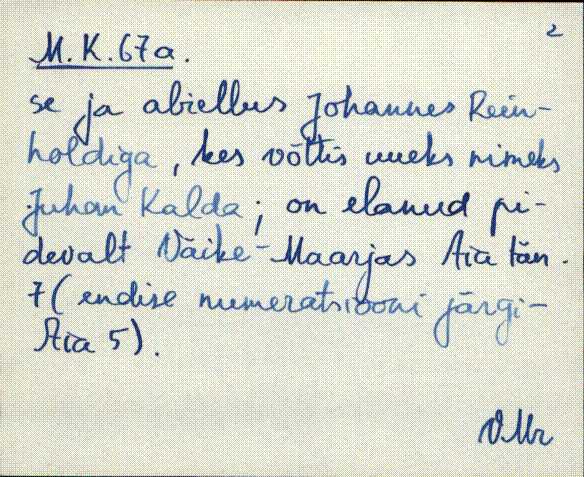 2
M.K. 67a.
se ja abiellus Johannes Rein-
holdiga, kes võttis uueks nimeks
Juhan Kalda; on elanud pi-
devalt Väike-Maarjas Aia tän.
7 (endise numeratsiooni järgi-
Aia 5).
VMr